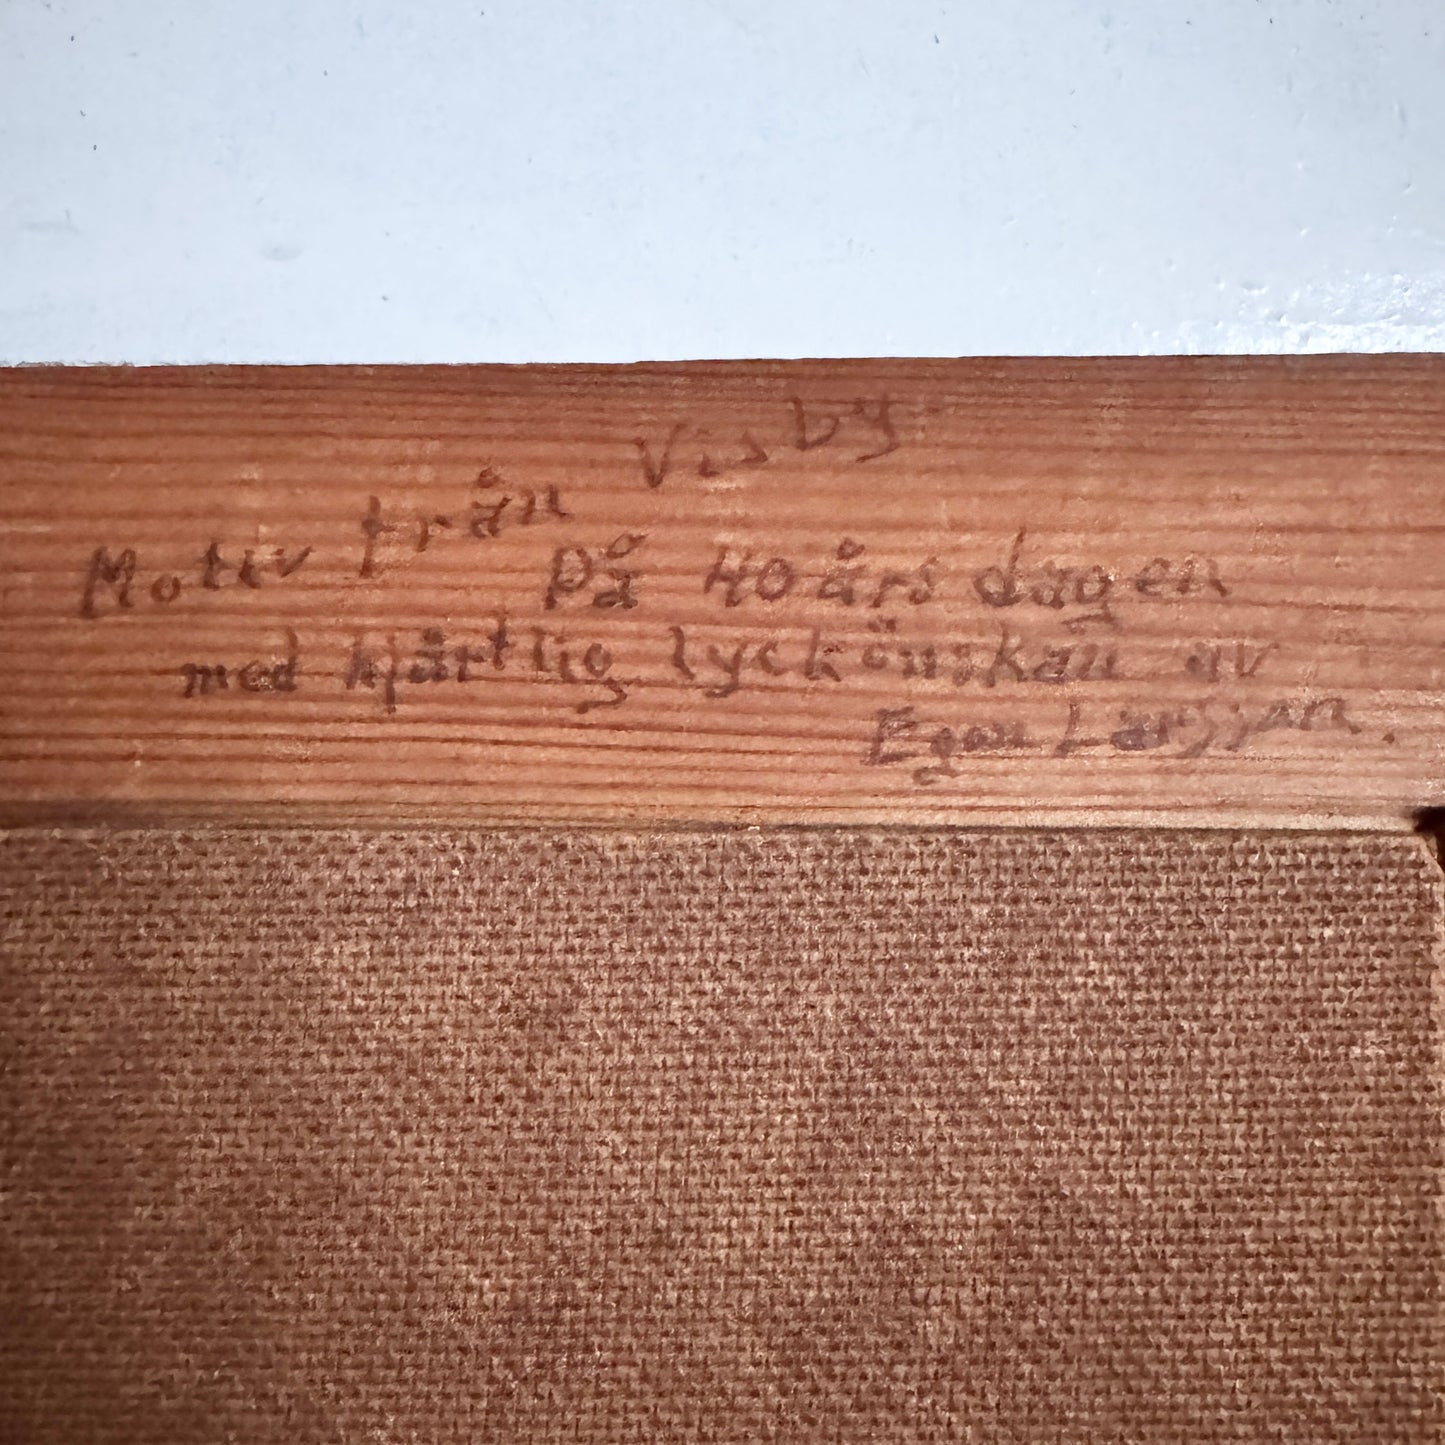 Motiv från Visby
På 40 årsdagen
med hjärtlig lyckönskan av
Egon Larsson.